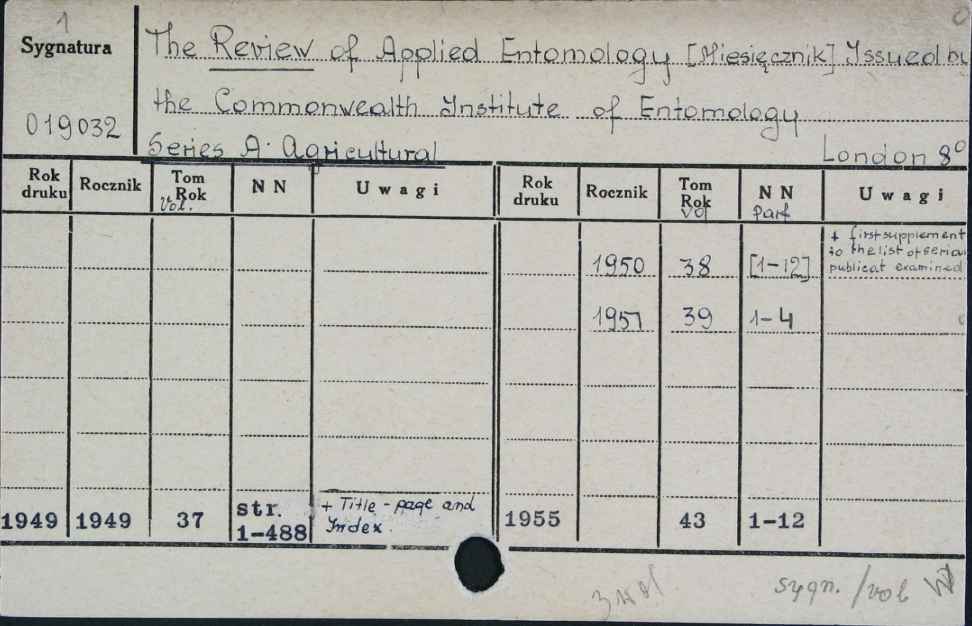 1
Sygnatura
019032
The Review of Applied Entomology [Miesięcznik] Issued by
the Commonwealth Institute of Entomology
Series A. Agricultural
London 8°
Rok druku Rocznik Tom Rok Vol. N N Uwagi Rok druku Rocznik Tom Rok vol N N part Uwagi
1950 38 [1-12] + first supplement
to the list of serial
publicat examined
1951 39 1-4
1949 1949 37 str. 1-488 + Title - page and
Index.
1955 43 1-12
sygn. /vol